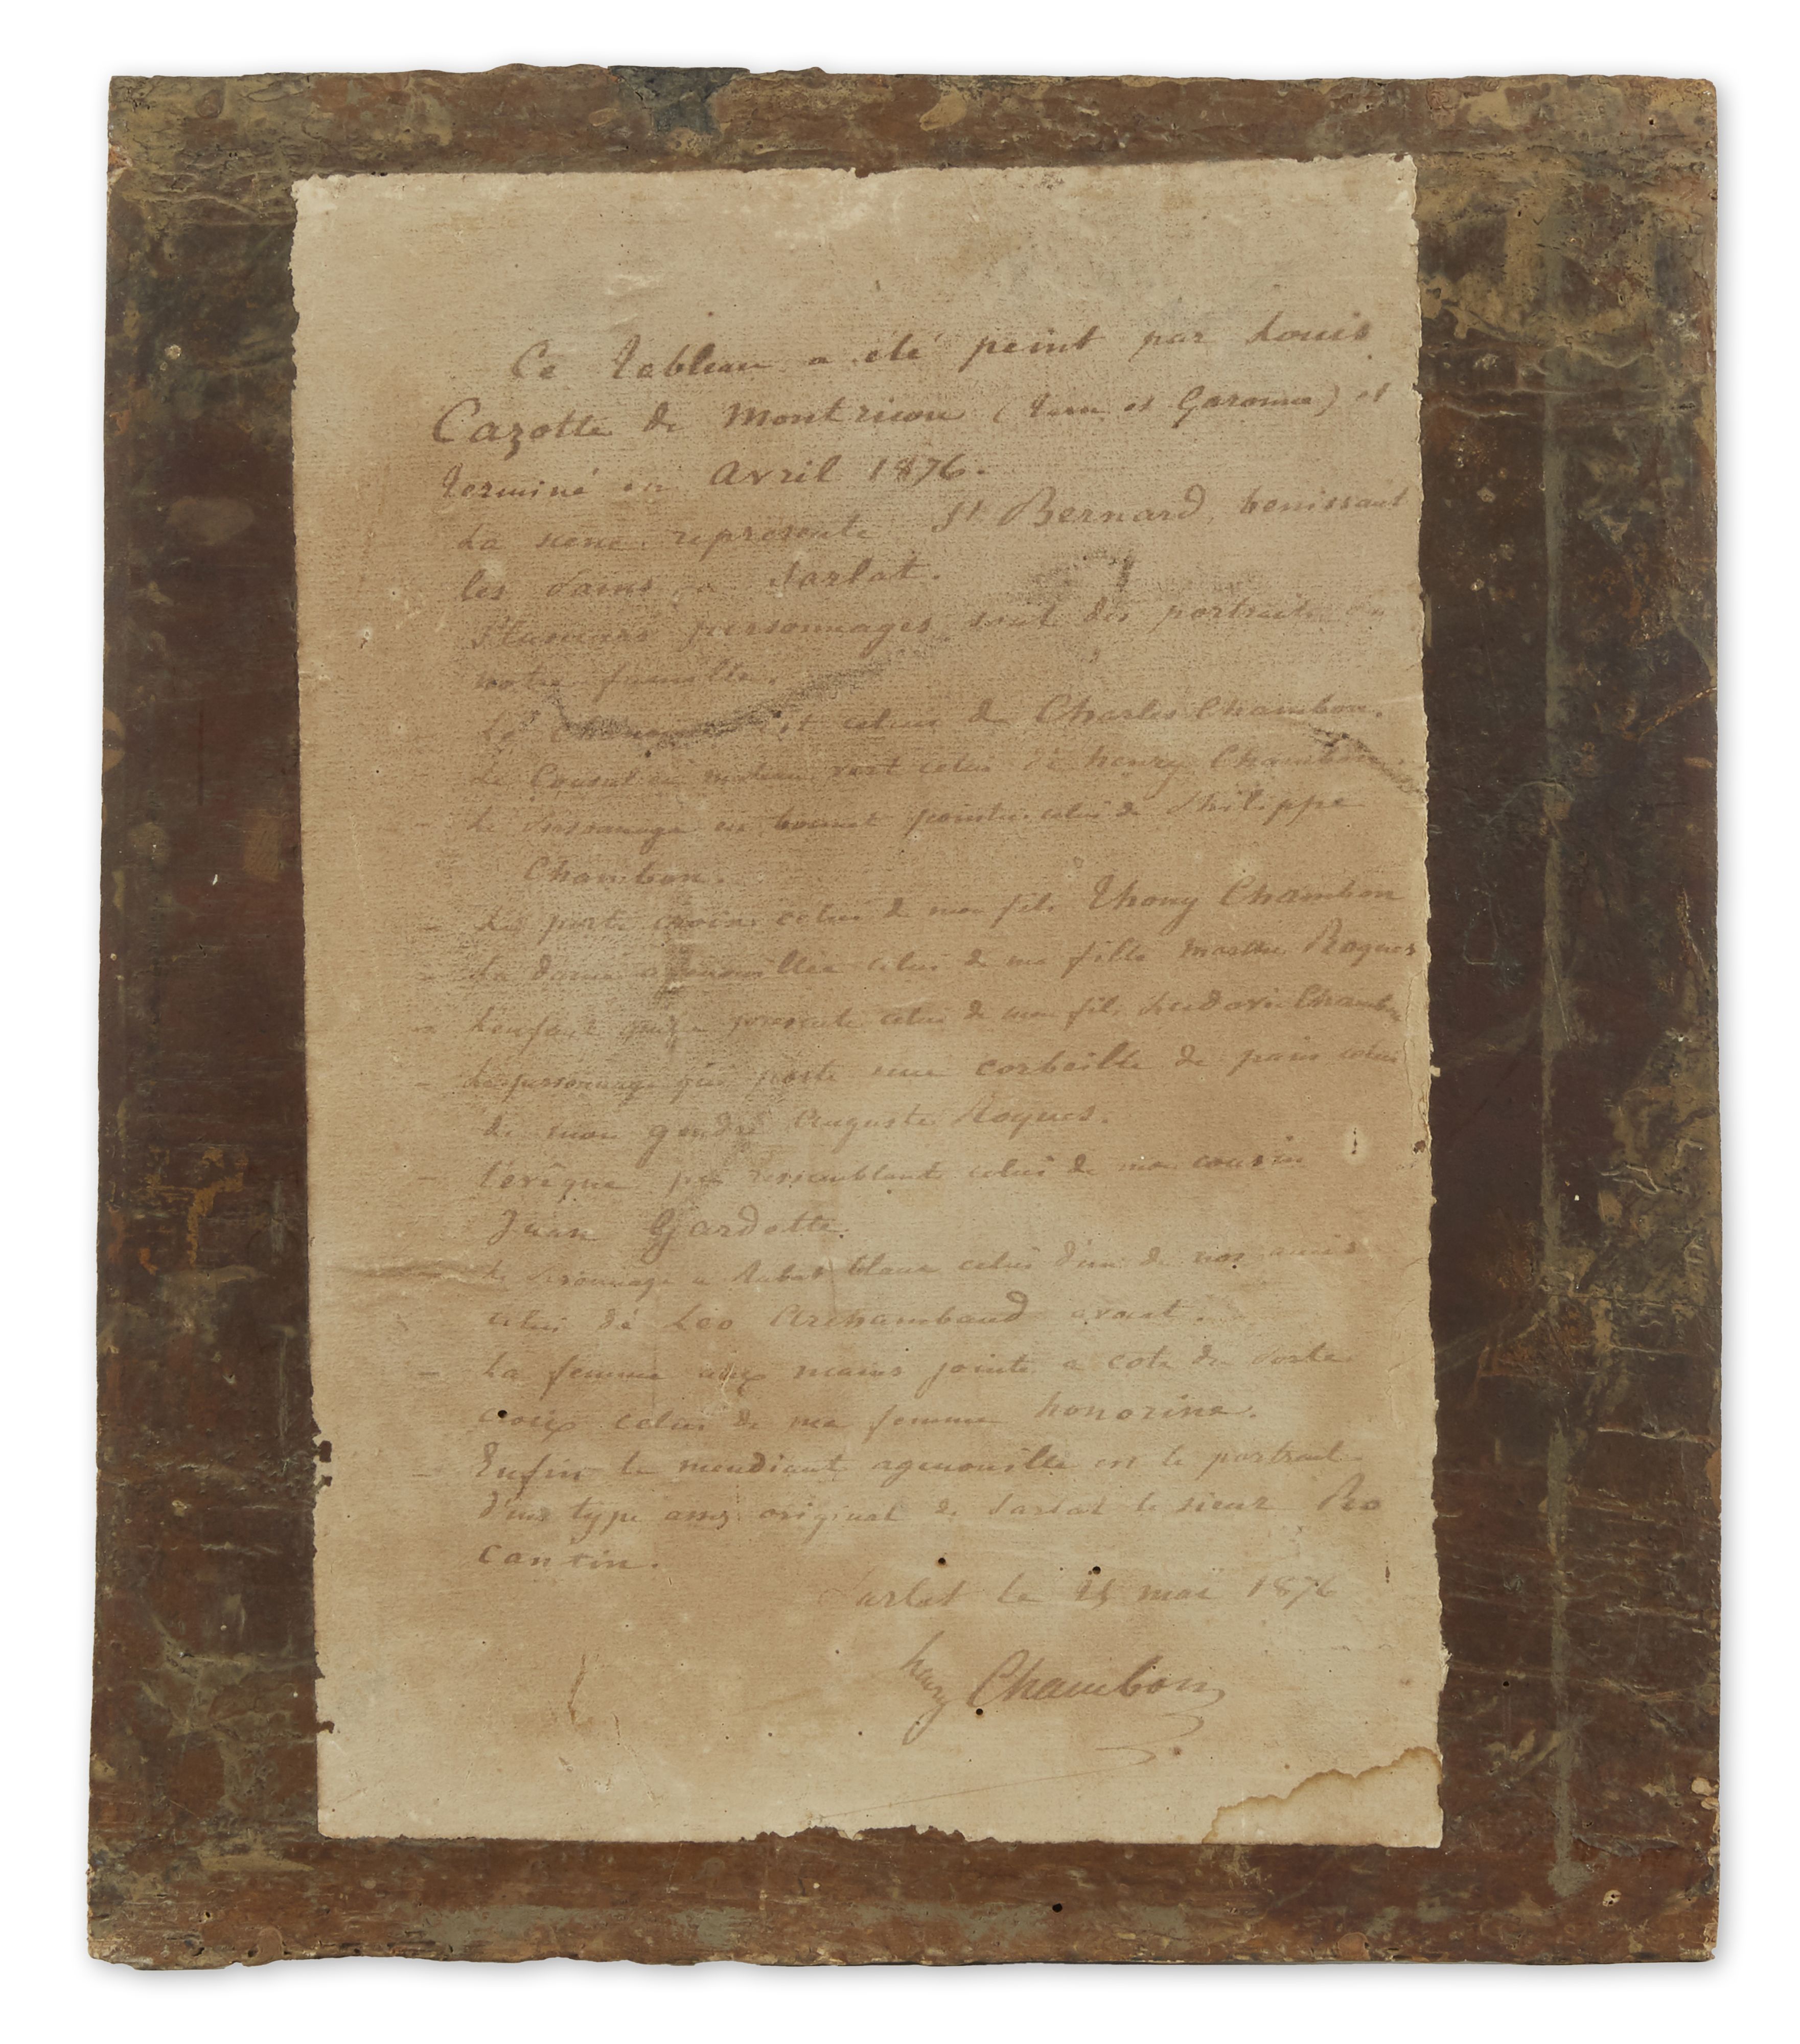 Ce tableau a été peint par Louis
Cazotte de Montricou (Tarn et Garonne) et
terminé en Avril 1876.
La scene represente St Bernard benissant
les pains a Sarlat.
Plusieurs personnages sont des portraits de
notre famille.
Le est celui de Charles Chambon.
Le Consul en manteau vert celui de henry Chambon.
- Le Personnage en bonnet pointu celui de Philippe
Chambon.
- Le porte croix celui de mon fils Thony Chambon
- La dame agenouillée celui de ma fille Marthe Roques
- L'enfant qu'elle presente celui de mon fils Ludovic Chambon
- Le personnage qui porte une corbeille de pains celui
de mon gendre Auguste Roques.
- l'evêque peu ressemblant celui de mon cousin
Juan Gardette.
Le Personnage a Rabat blanc celui d'un de nos amis
celui de Leo Archambaud avocat.
- La femme aux mains jointe a cote du Porte
croix celui de ma femme honorine.
- Enfin le mendiant agenouille est le portrait
d'un type assez original de Sarlat le sieur Ro
cantin.
Sarlat le 15 mai 1876
henry Chambon